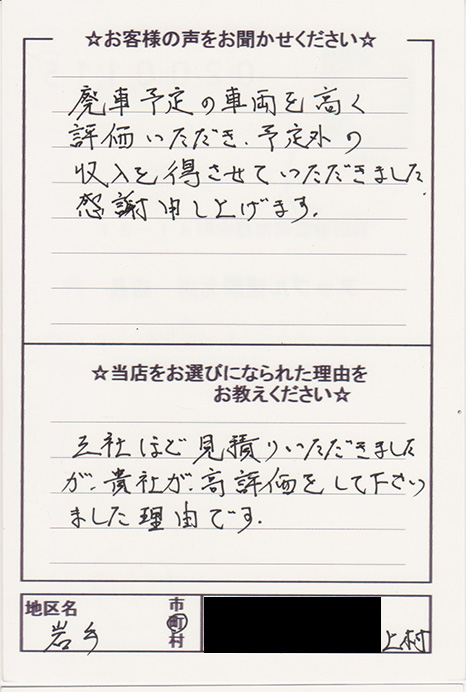 ☆お客様の声をお聞かせください☆
廃車予定の車両を高く
評価いただき、予定外の
収入を得させていただきました
感謝申し上げます。
☆当店をお選びになられた理由を
お教えください☆
三社ほど見積りいただきました
が、貴社が、高評価をして下さい
ました理由です。
地区名
岩手
市
町
村
上村